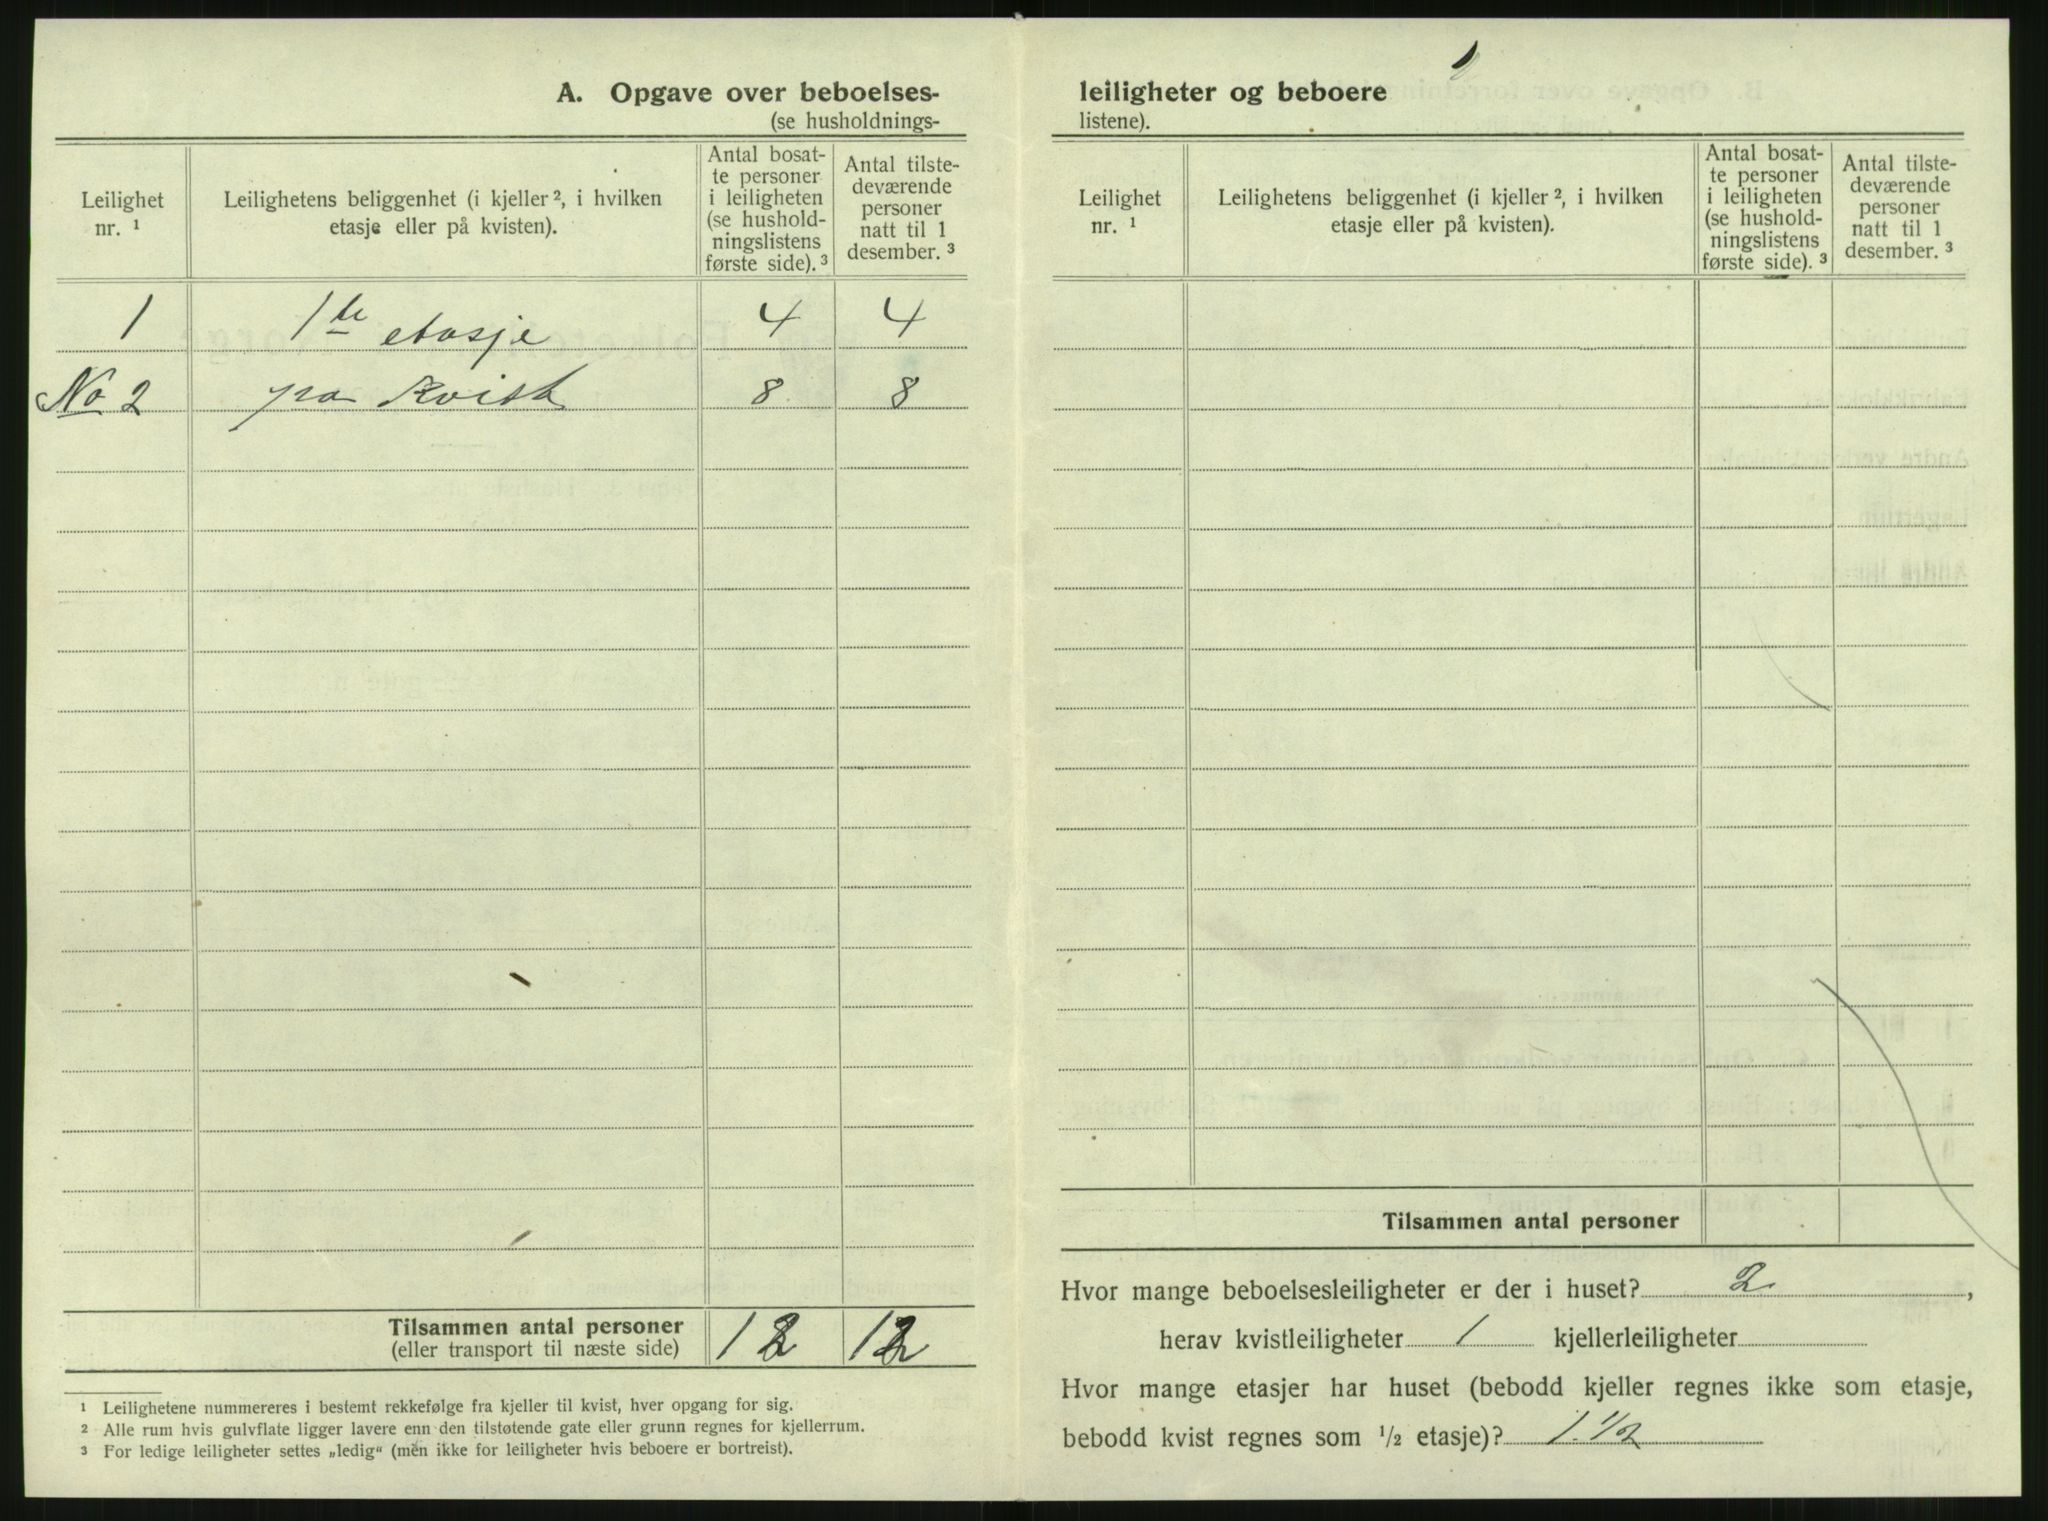 A. Opgave over beboelses-
(se husholdnings-
Leilighet
nr. 1
Leilighetens beliggenhet (i kjeller 2, i hvilken
etasje eller på kvisten).
Antal bosat-
te personer
i leiligheten
(se hushold-
ningslistens
første side). 3
Antal tilste-
deværende
personer
natt til 1
desember. 3
1 1ste etasje 4 4
No 2 pa Kvist 8 8
Tilsammen antal personer 12 12
(eller transport til næste side)
1 Leilighetene nummereres i bestemt rekkefølge fra kjeller til kvist, hver opgang for sig.
2 Alle rum hvis gulvflate ligger lavere enn den tilstøtende gate eller grunn regnes for kjellerrum.
3 For ledige leiligheter settes „ledig“ (men ikke for leiligheter hvis beboere er bortreist).
leiligheter og beboere
listene).
Leilighet
nr. 1
Leilighetens beliggenhet (i kjeller 2, i hvilken
etasje eller på kvisten).
Antal bosat-
te personer
i leiligheten
(se hushold-
ningslistens
første side). 3
Antal tilste-
deværende
personer
natt til 1
desember. 3
Tilsammen antal personer
Hvor mange beboelsesleiligheter er der i huset? 2,
herav kvistleiligheter 1 kjellerleiligheter
Hvor mange etasjer har huset (bebodd kjeller regnes ikke som etasje,
bebodd kvist regnes som 1/2 etasje)? 1.1/2